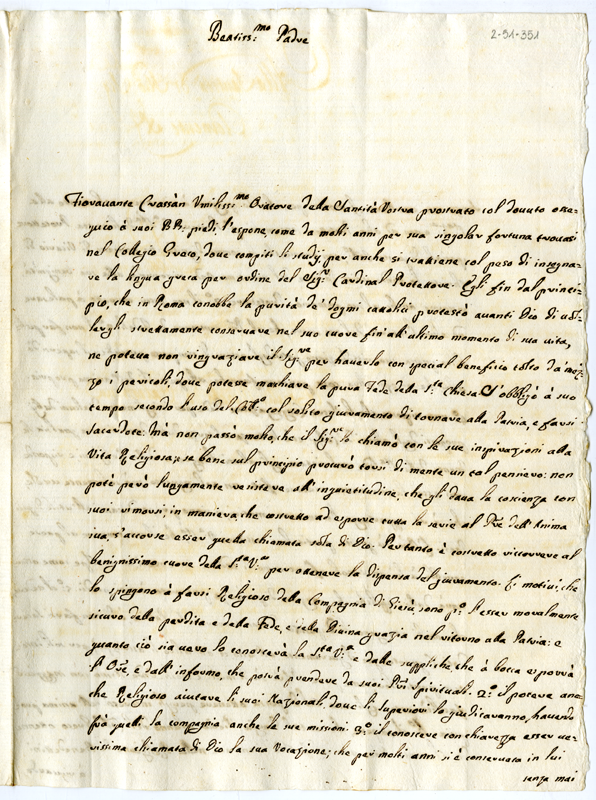 2-51-351
Beatiss:mo Padre
Fioravante Crassàn Umiliss:mo Oratore della Santità Vostra prostrato col dovuto osse=
quio à suoi BB: piedi l'espone, come da molti anni per sua singolar fortuna trovasi
nel Collegio Greco, dove compiti li studij, per anche si trattiene col peso di insegna=
re la lingua greca per ordine del Sig:r Cardinal Protettore. Egli fin dal princi=
pio, che in Roma conobbe la purità de' dogmi catolici protestò avanti Dio di vo=
lergli strettamente conservare nel suo cuore fin'all'ultimo momento di sua vita,
ne poteva non ringraziare il Sig:re per haverlo con special beneficio tolto da' mez=
zo i pericoli, dove poteva macchiare la pura Fede della S:ta Chiesa. S'obbligò à suo
tempo secondo l'uso del Coll:o col solito giuramento di tornare alla Patria, e farsi
sacerdote: Mà non passò molto, che il Sig:re lo chiamò con le sue inspirazioni alla
Vita Religiosa; e se bene sul principio procurò torsi di mente un tal pensiero: non
potè però lungamente resistere all'inquietitudine, che gli dava la coscienza con
suoi rimorsi, in maniera, che costretto ad esporre tutta la serie al P're dell'Anima
sua, s'accorse esser quella chiamata sola di Dio. Pertanto è costretto ricorrere al
benignissimo cuore della S:tà V:ra per ottenere la dispensa del giuramento. E i motivi, che
lo spingono à farsi Religioso della Compagnia di Giesù, sono p:o l'esser moralmente
sicuro della perdita e della Fede, e della Divina grazia nel ritorno alla Patria: e
quanto ciò sia vero lo conoscerà la S:tà V:ra e dalle suppliche, che à bocca esporrà
l'Ore, e dall'informo, che potrà prendere da suoi P'ri Spirituali. 2:o il potere an=
che Religioso aiutare li suoi Nazionali, dove li superiori lo giudicaranno, havendo
frà quelli la compagnia anche le sue missioni. 3:o il conoscere con chiarezza esser ve=
rissima chiamata di Dio la sua Vocazione; che per molti anni si è conservata in lui
senza mai